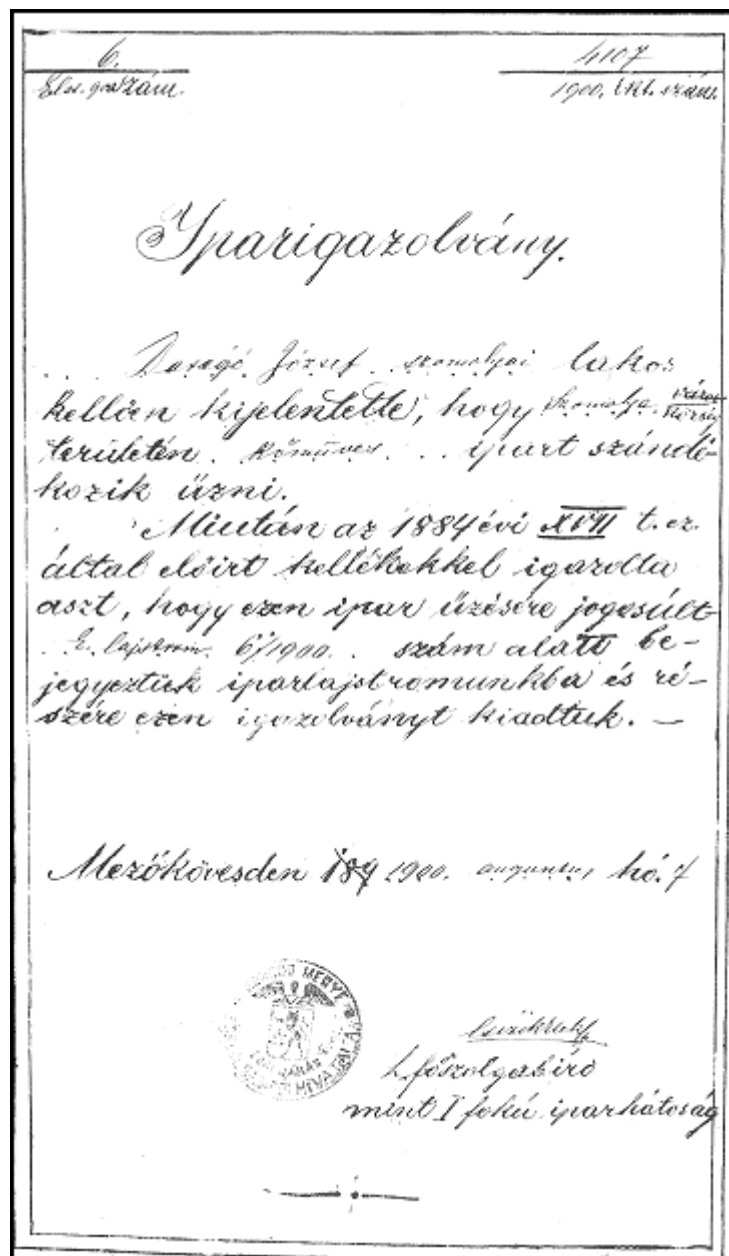 6. 4107
szám. 1900. ikt. szám.
Iparigazolvány.
József szomolyai lakos
kellőn kijelentette, hogy Szomolya város község
területén kőműves ipart szándé-
kozik űzni.
Miután az 1884 évi XVII t. cz.
által előirt kellékekkel igazolta
aszt, hogy ezen ipar űzésére jogosúlt
E. lajstrom 6/1900. szám alatt be-
jegyeztük iparlajstromunkba és ré-
szére ezen igazolványt kiadtuk. —
Mezőkövesden 189 1900. augustus hó. 7
MEGYE
HIVATALA
főszolgabiró
mint I fokú iparhátoság